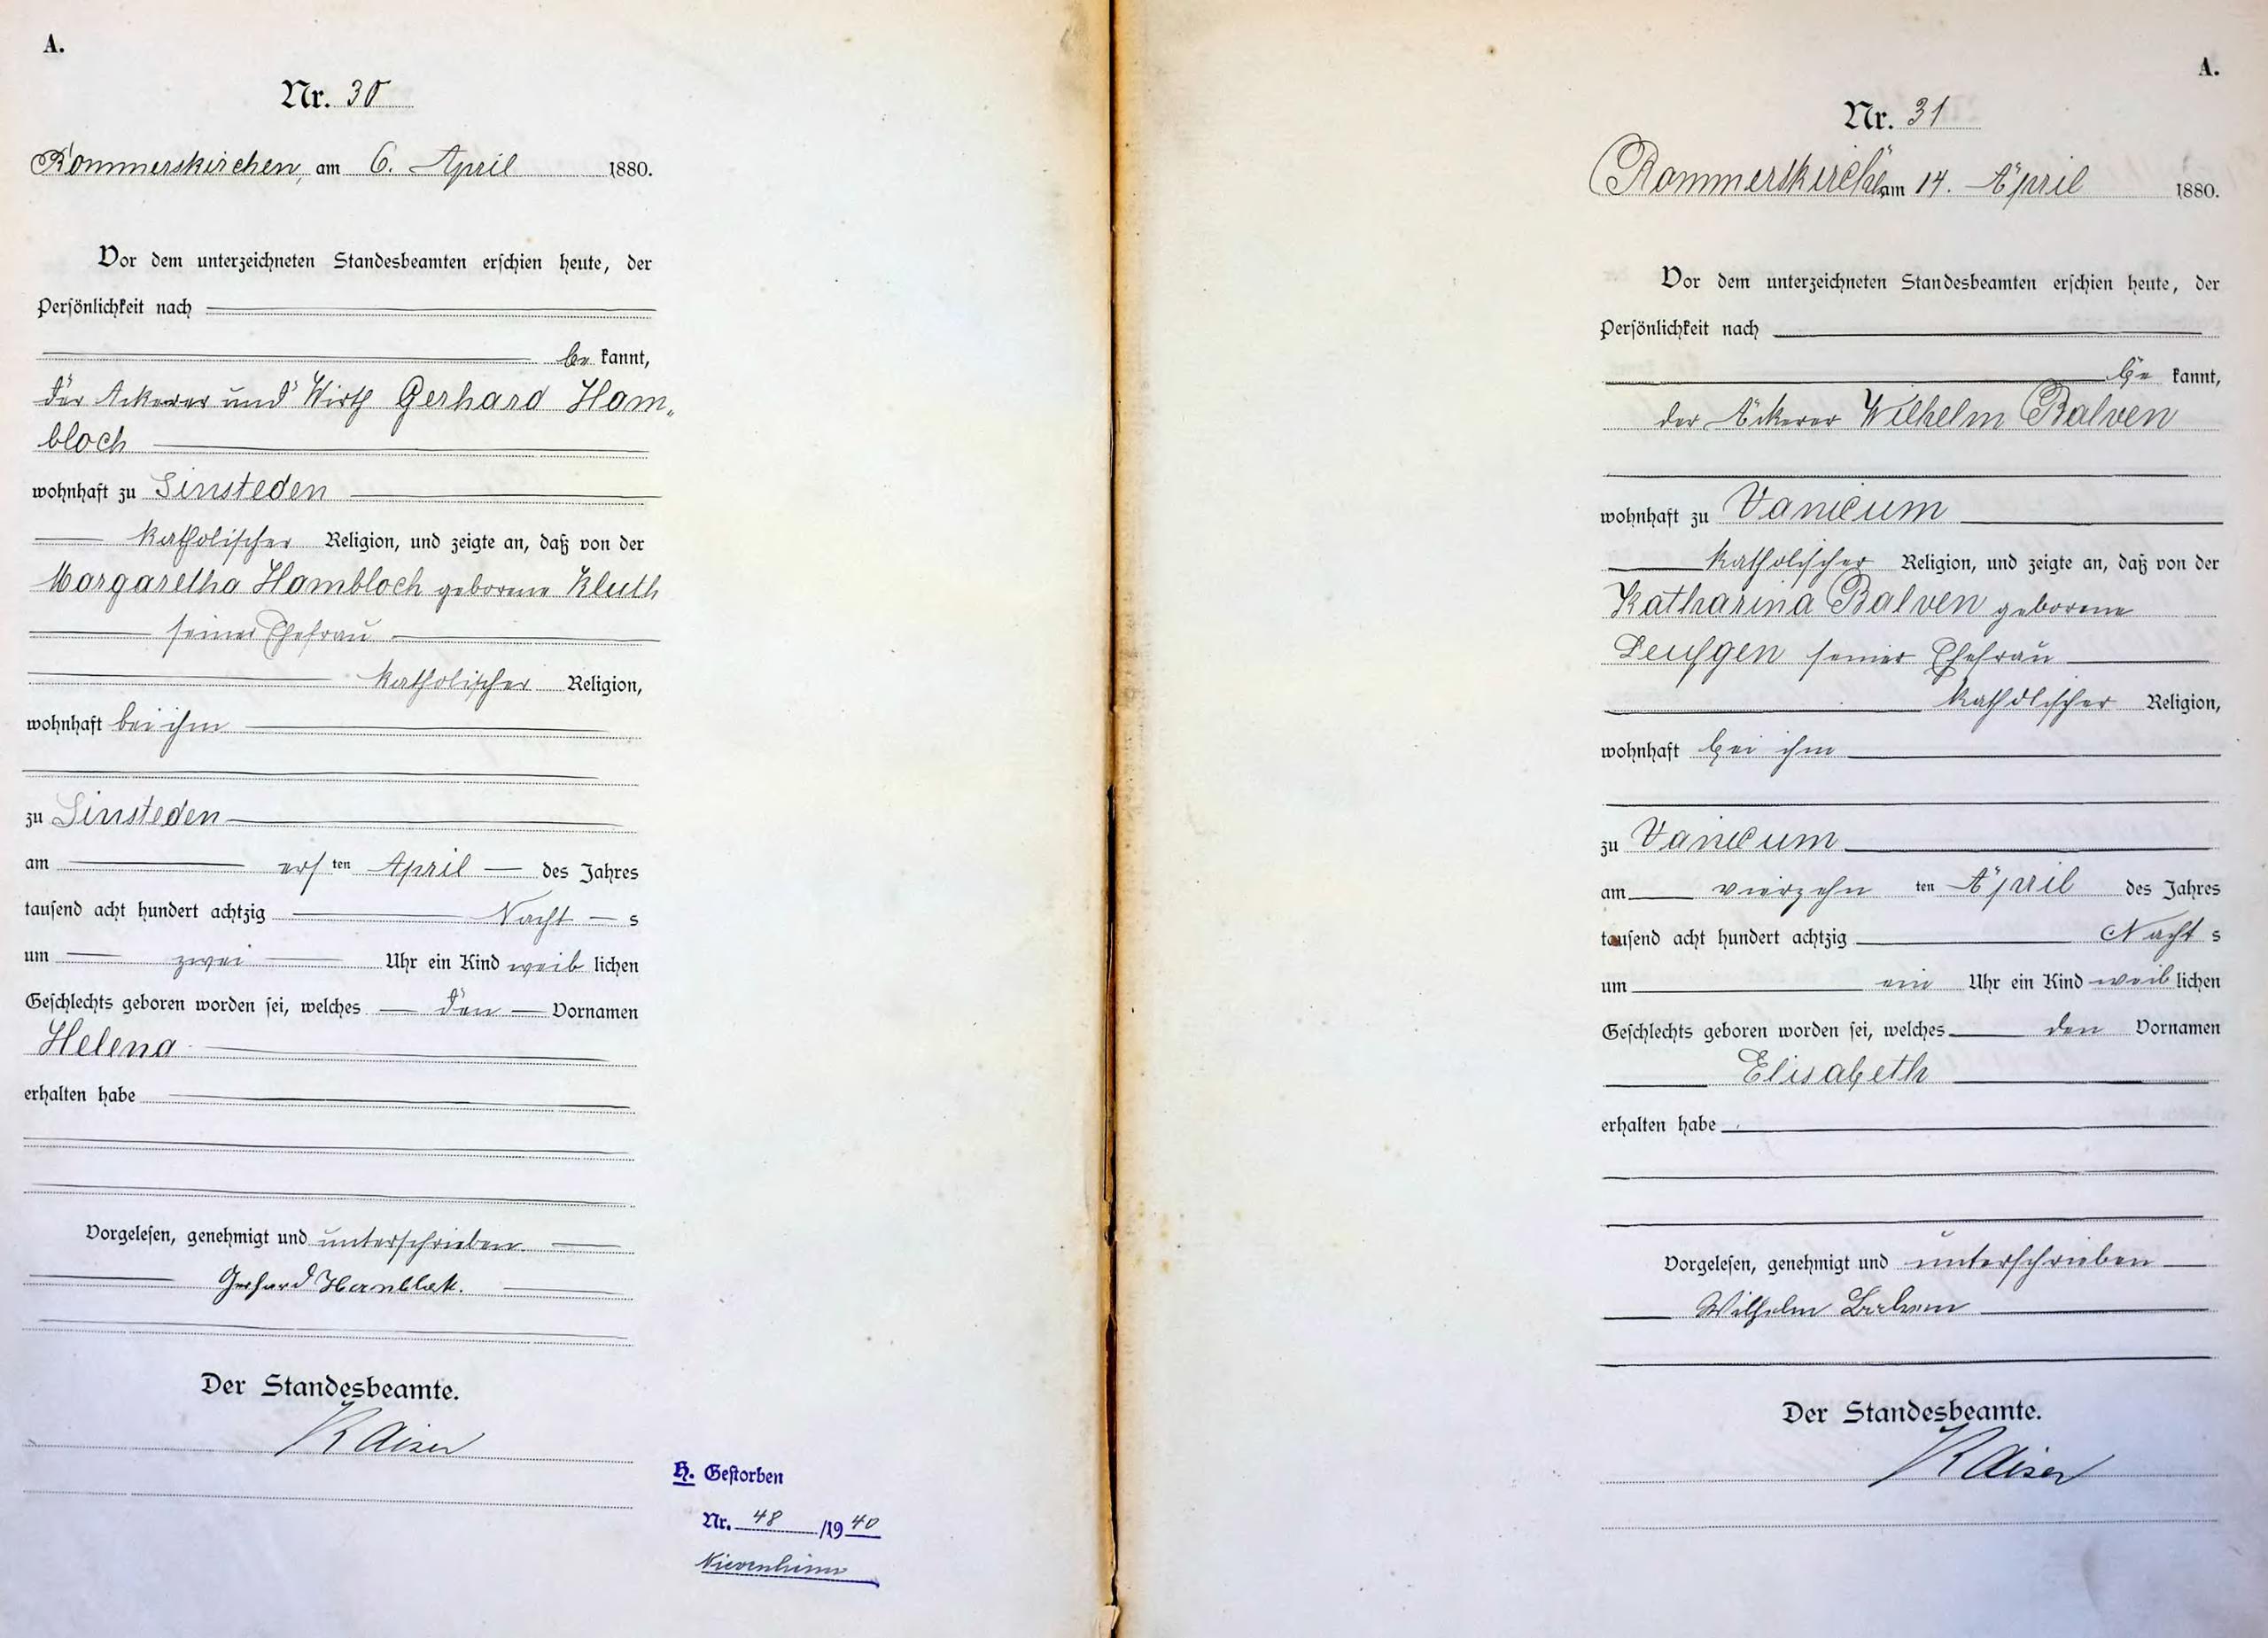 A.
Nr. 30
Rommerskirchen, am 6. April 1880.
Vor dem unterzeichneten Standesbeamten erschien heute, der
Persönlichkeit nach
be kannt,
der Ackerer und Wirth Gerhard Ham„
bloch
wohnhaft zu Sinsteden
katholischer Religion, und zeigte an, daß von der
Margaretha Hambloch geborene Kluth
seiner Ehefrau
katholischer Religion,
wohnhaft bei ihm
zu Sinsteden
am ers ten April des Jahres
tausend acht hundert achtzig Nacht s
um zwei Uhr ein Kind weib lichen
Geschlechts geboren worden sei, welches den Vornamen
Helena
erhalten habe
Vorgelesen, genehmigt und unterschrieben.
Gerhard Hambloch.
Der Standesbeamte.
Kaiser
H. Gestorben
Nr. 48 /19 40
Nievenheim
A.
Nr. 31
Rommerskirchen am 14. April 1880.
Vor dem unterzeichneten Standesbeamten erschien heute, der
Persönlichkeit nach
be kannt,
der Ackerer Wilhelm Balven
wohnhaft zu Vanicum
katholischer Religion, und zeigte an, daß von der
Katharina Balven geborene
Deussgen seiner Ehefrau
katholischer Religion,
wohnhaft bei ihm
zu Vanicum
am vierzehn ten April des Jahres
tausend acht hundert achtzig Nacht s
um ein Uhr ein Kind weib lichen
Geschlechts geboren worden sei, welches den Vornamen
Elisabeth
erhalten habe
Vorgelesen, genehmigt und unterschrieben
Wilhelm Balven
Der Standesbeamte.
Kaiser